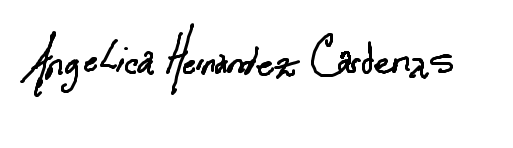 Angelica Hernandez Cardenas